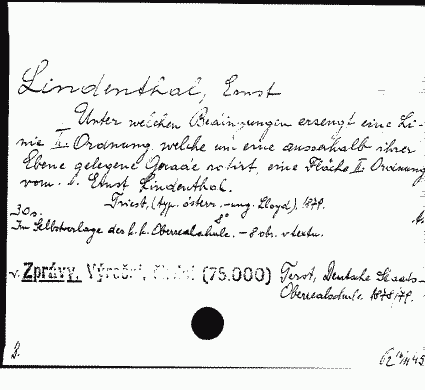 Lindenthal, Ernst
Unter welchen Bedingungen erzeugt eine Li-
nie II. Ordnung, welche um eine ausserhalb ihrer
Ebene gelegene Gerade rotirt, eine Fläche II. Ordnung
vom Ernst Lindenthal.
Triest, (typ. österr.-ung. Lloyd), 1879.
30 s. 8°
Im Selbstverlage der k.k. Oberrealschule. - 8 obr. v textu.
v. Zprávy, Výroční, školní (75.000) Terst, Deutsche Staats-
Oberrealschule 1878/79.